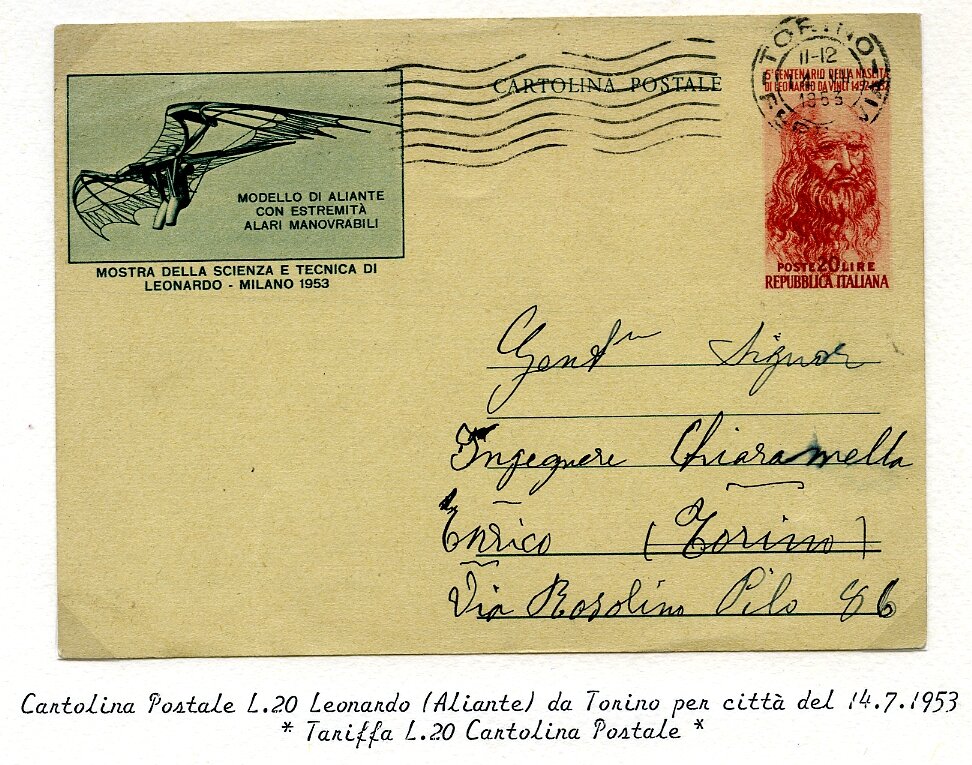 CARTOLINA POSTALE
TORINO
11-12
1953
5° CENTENARIO DELLA NASCITA
DI LEONARDO DA VINCI 1452-1952
POSTE 20 LIRE
REPUBBLICA ITALIANA
MODELLO DI ALIANTE
CON ESTREMITÀ
ALARI MANOVRABILI
MOSTRA DELLA SCIENZA E TECNICA DI
LEONARDO - MILANO 1953
Gent.m Signor
Ingegnere Chiaramella
Enrico (Torino)
Via Rosolino Pilo 86
Cartolina Postale L.20 Leonardo (Aliante) da Torino per città del 14.7.1953
* Tariffa L.20 Cartolina Postale *